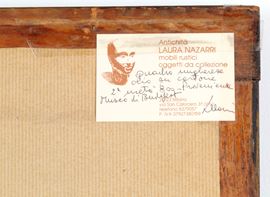 Antichità
LAURA NAZARRI
mobili rustici
oggetti da collezione
Quadro ungherese
olio su cartone
2ª metà 800 - Provenienza
Museo di Budapest
Milano
telefono